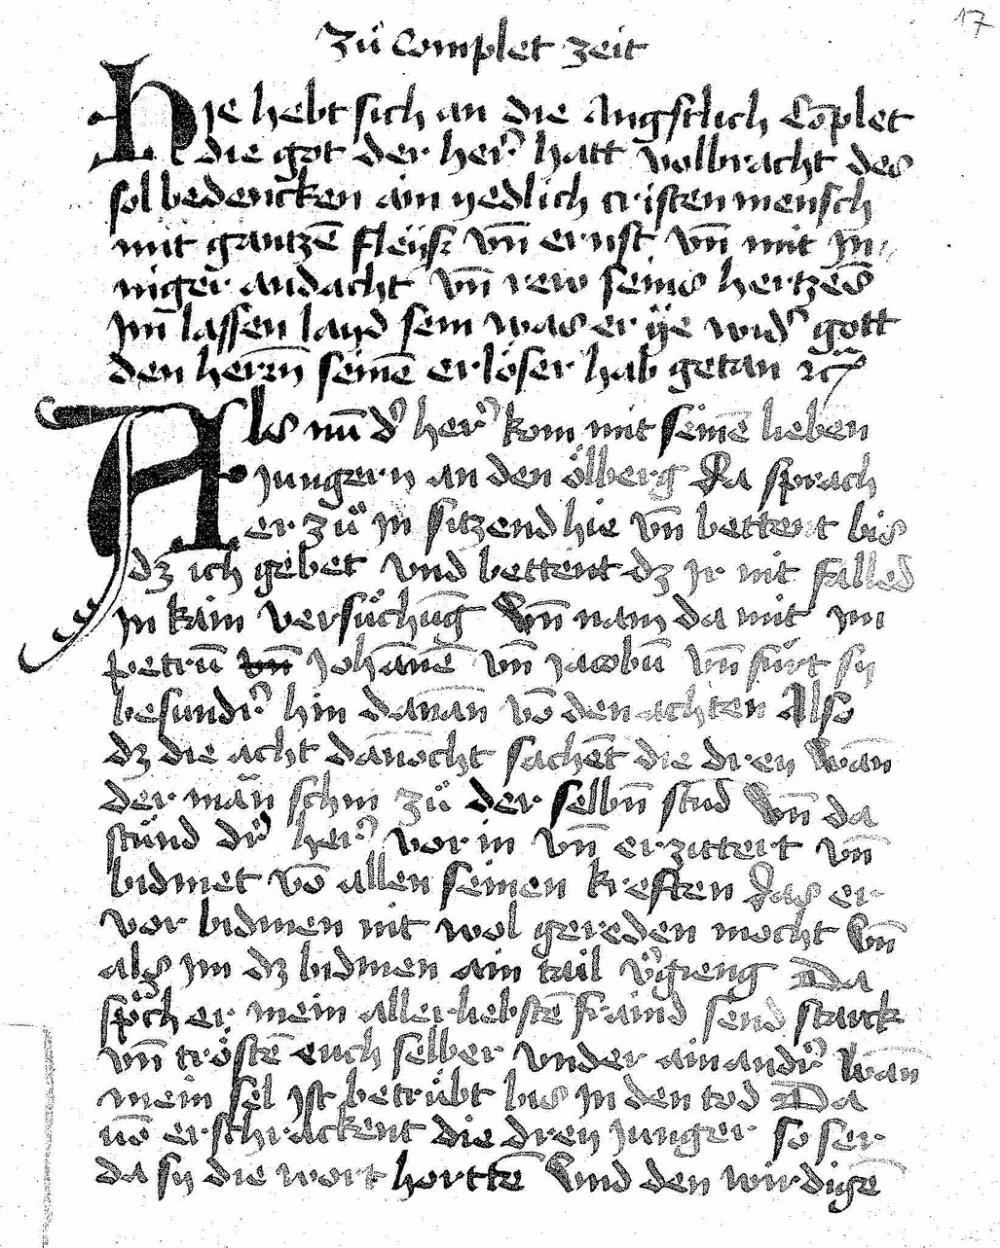 17
Zů Complet zeit
Hie hebt sich an die Angstlich Cōplet
die got der her᷑ hatt volbracht des
sol bedencken ain yedlich cristen mensch
mit gantzē fleÿsz vn̄ ernst vn̄ mit jn̄=
niger andacht vn̄ rew seins hertzēs
jm̄ lassen layd sein was er ÿe wid᷑ gott
den herrn̄ seinē erlöser hab getan ꝛc
Als nun̄ d᷑ her᷑ kom mit seinē lieben
Jungern an den ölberg Da sprach
er zů jn sitzend hie vn̄ bettent bis
dz ich gebet vnd bettent dz jr nit falled
jn kain versůchūg vn̄ nam da mit jm
petrū vn̄ Johānē vn̄ jacobū vn̄ fůrt sy
besundr᷑ hin danān vō den achten Also
dz die acht dānocht sachēt die drey wān
der mān schin zů der selbn̄ stūd vn̄ da
stůnd dr᷑ her᷑ vor in vn̄ erzittert vn̄
bidmet vō allen seinen kreften das er
vor bidmen nit wol gereden mocht vn̄
alz jm dz bidmen ain tail v᷑gieng Da
sp̄ch er mein allerliebstē fraind send starck
vn̄ tröstē euch selber vnder ainandr᷑ wān
mein sel jst betrůbt bis jn den tod Da
uō erschrackent die drey junger so ser
da sy die wort hortē vnd den wirdigē